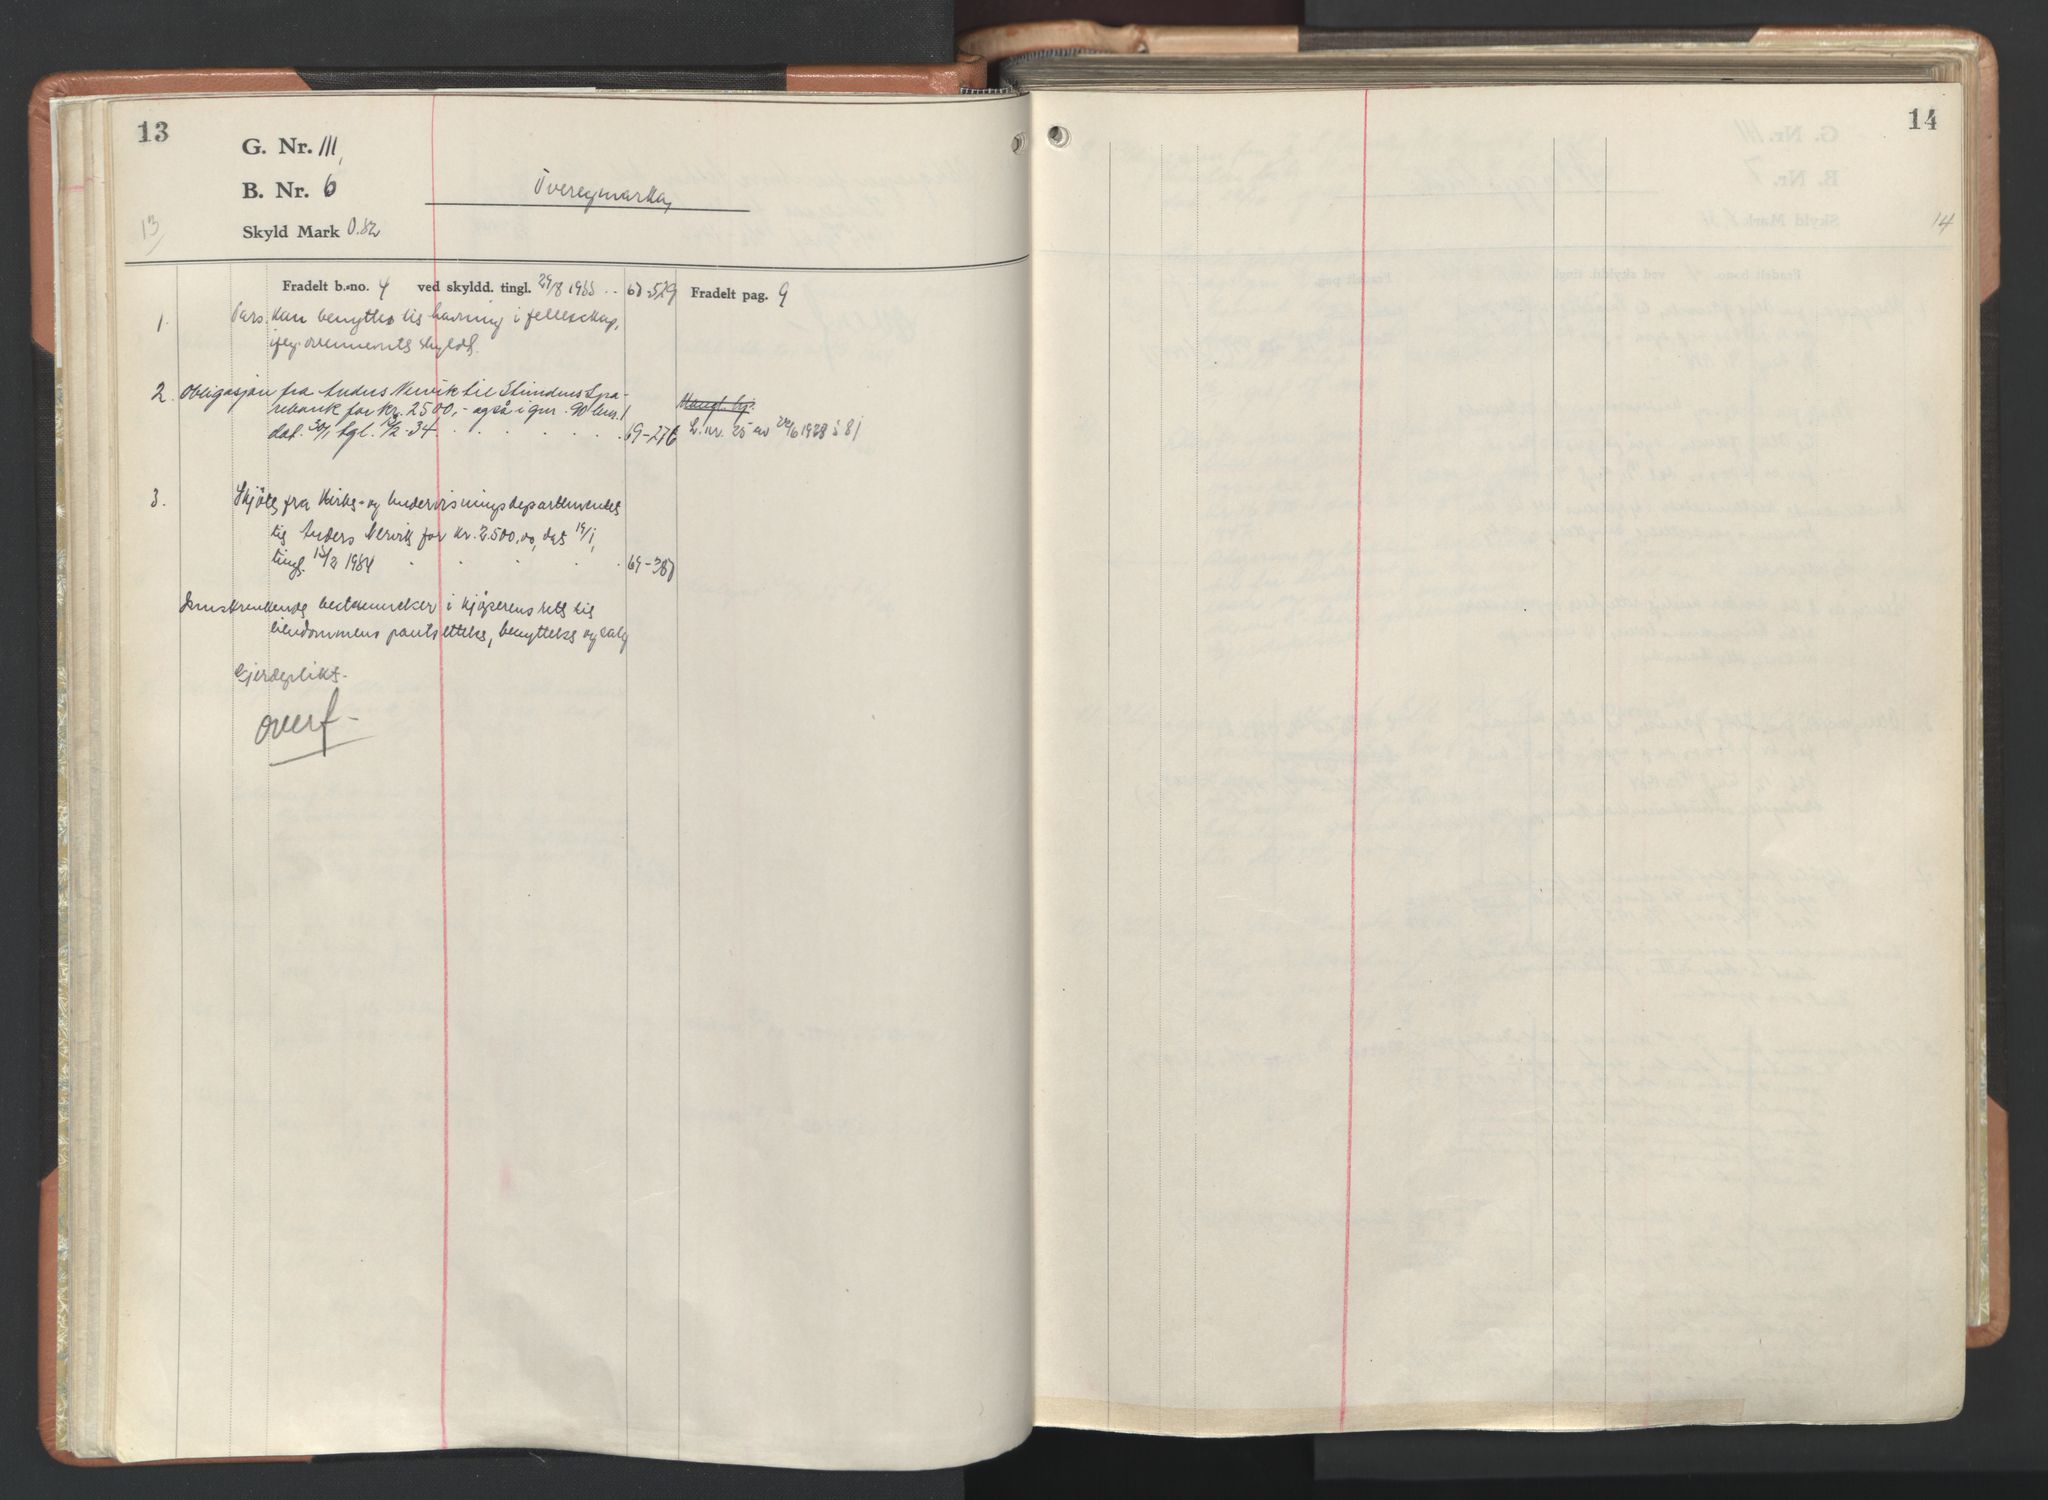 13
G. Nr. 111,
B. Nr. 6
Overeymarka,
13
Skyld Mark 0.82
Fradelt b.-no. 4 ved skyldd. tingl. 29/8 1933 .. 67-579 Fradelt pag. 9
1. kan benyttes til havning i felleskap,
skyldd.
2. Obligasjon fra Anders Nervik til Strindens Spa-
rebank for kr. 2500,- også i gnr. 90 bnr. 1
dat. 30/1 tgl. 12/2-34. 69-276
Mangl. hj.
L. nr. 25 av 22/6 1928 § 81
3. Skjøte fra Kirke- og Undervisningsdepartementet
til Anders Nervik for kr. 2.500,00, dat 19/1,
tingl. 15/2 1934 69-387
Innskrenkende bestemmelser i kjøperens rett til
eiendommens pantsettelse, benyttelse og salg
Gjerdeplikt.
overf-
14
14